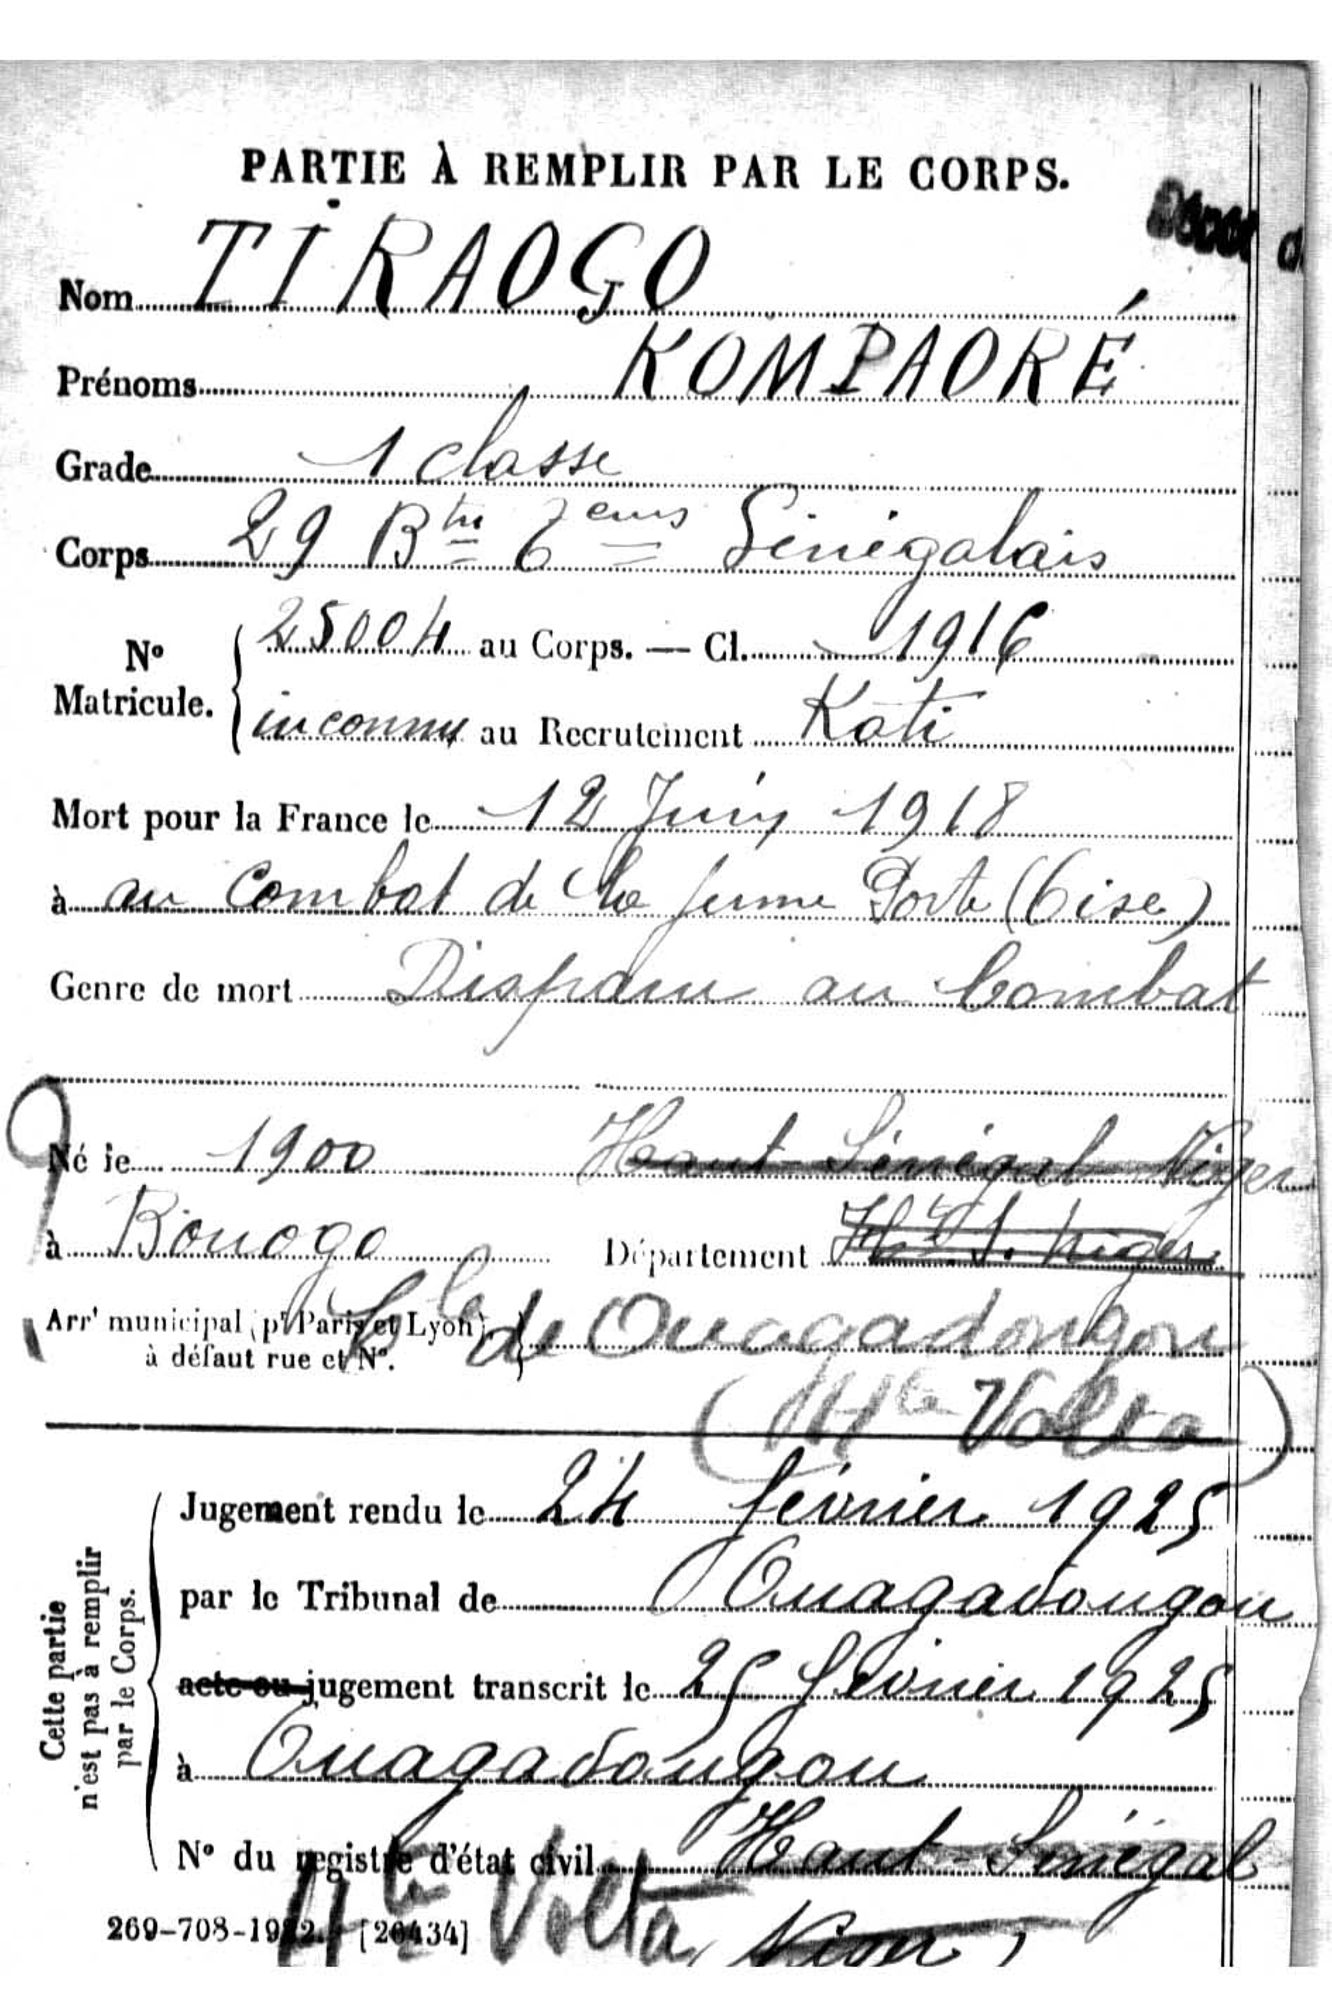 PARTIE À REMPLIR PAR LE CORPS.
Nom TIRAOGO
Prénoms KOMPAORÉ
Grade 1 classe
Corps 29 Bton Teurs Sénégalais
No Matricule. 25004 au Corps. — Cl. 1916
inconnu au Recrutement Kati
Mort pour la France le 12 Juin 1918
à au Combat de la ferme Porte (Oise)
Genre de mort Disparu au Combat
Né le 1900 Haut Sénégal Niger
à Bouogo Département Ht S. Niger
Arrt municipal (pr Paris et Lyon), à défaut rue et No. Cle de Ouagadougou
(Hte Volta)
Cette partie n'est pas à remplir par le Corps.
Jugement rendu le 24 février 1925
par le Tribunal de Ouagadougou
acte ou jugement transcrit le 25 février 1925
à Ouagadougou
No du registre d'état civil Haut-Sénégal
Hte Volta Niger
269-708-1922. [26434]